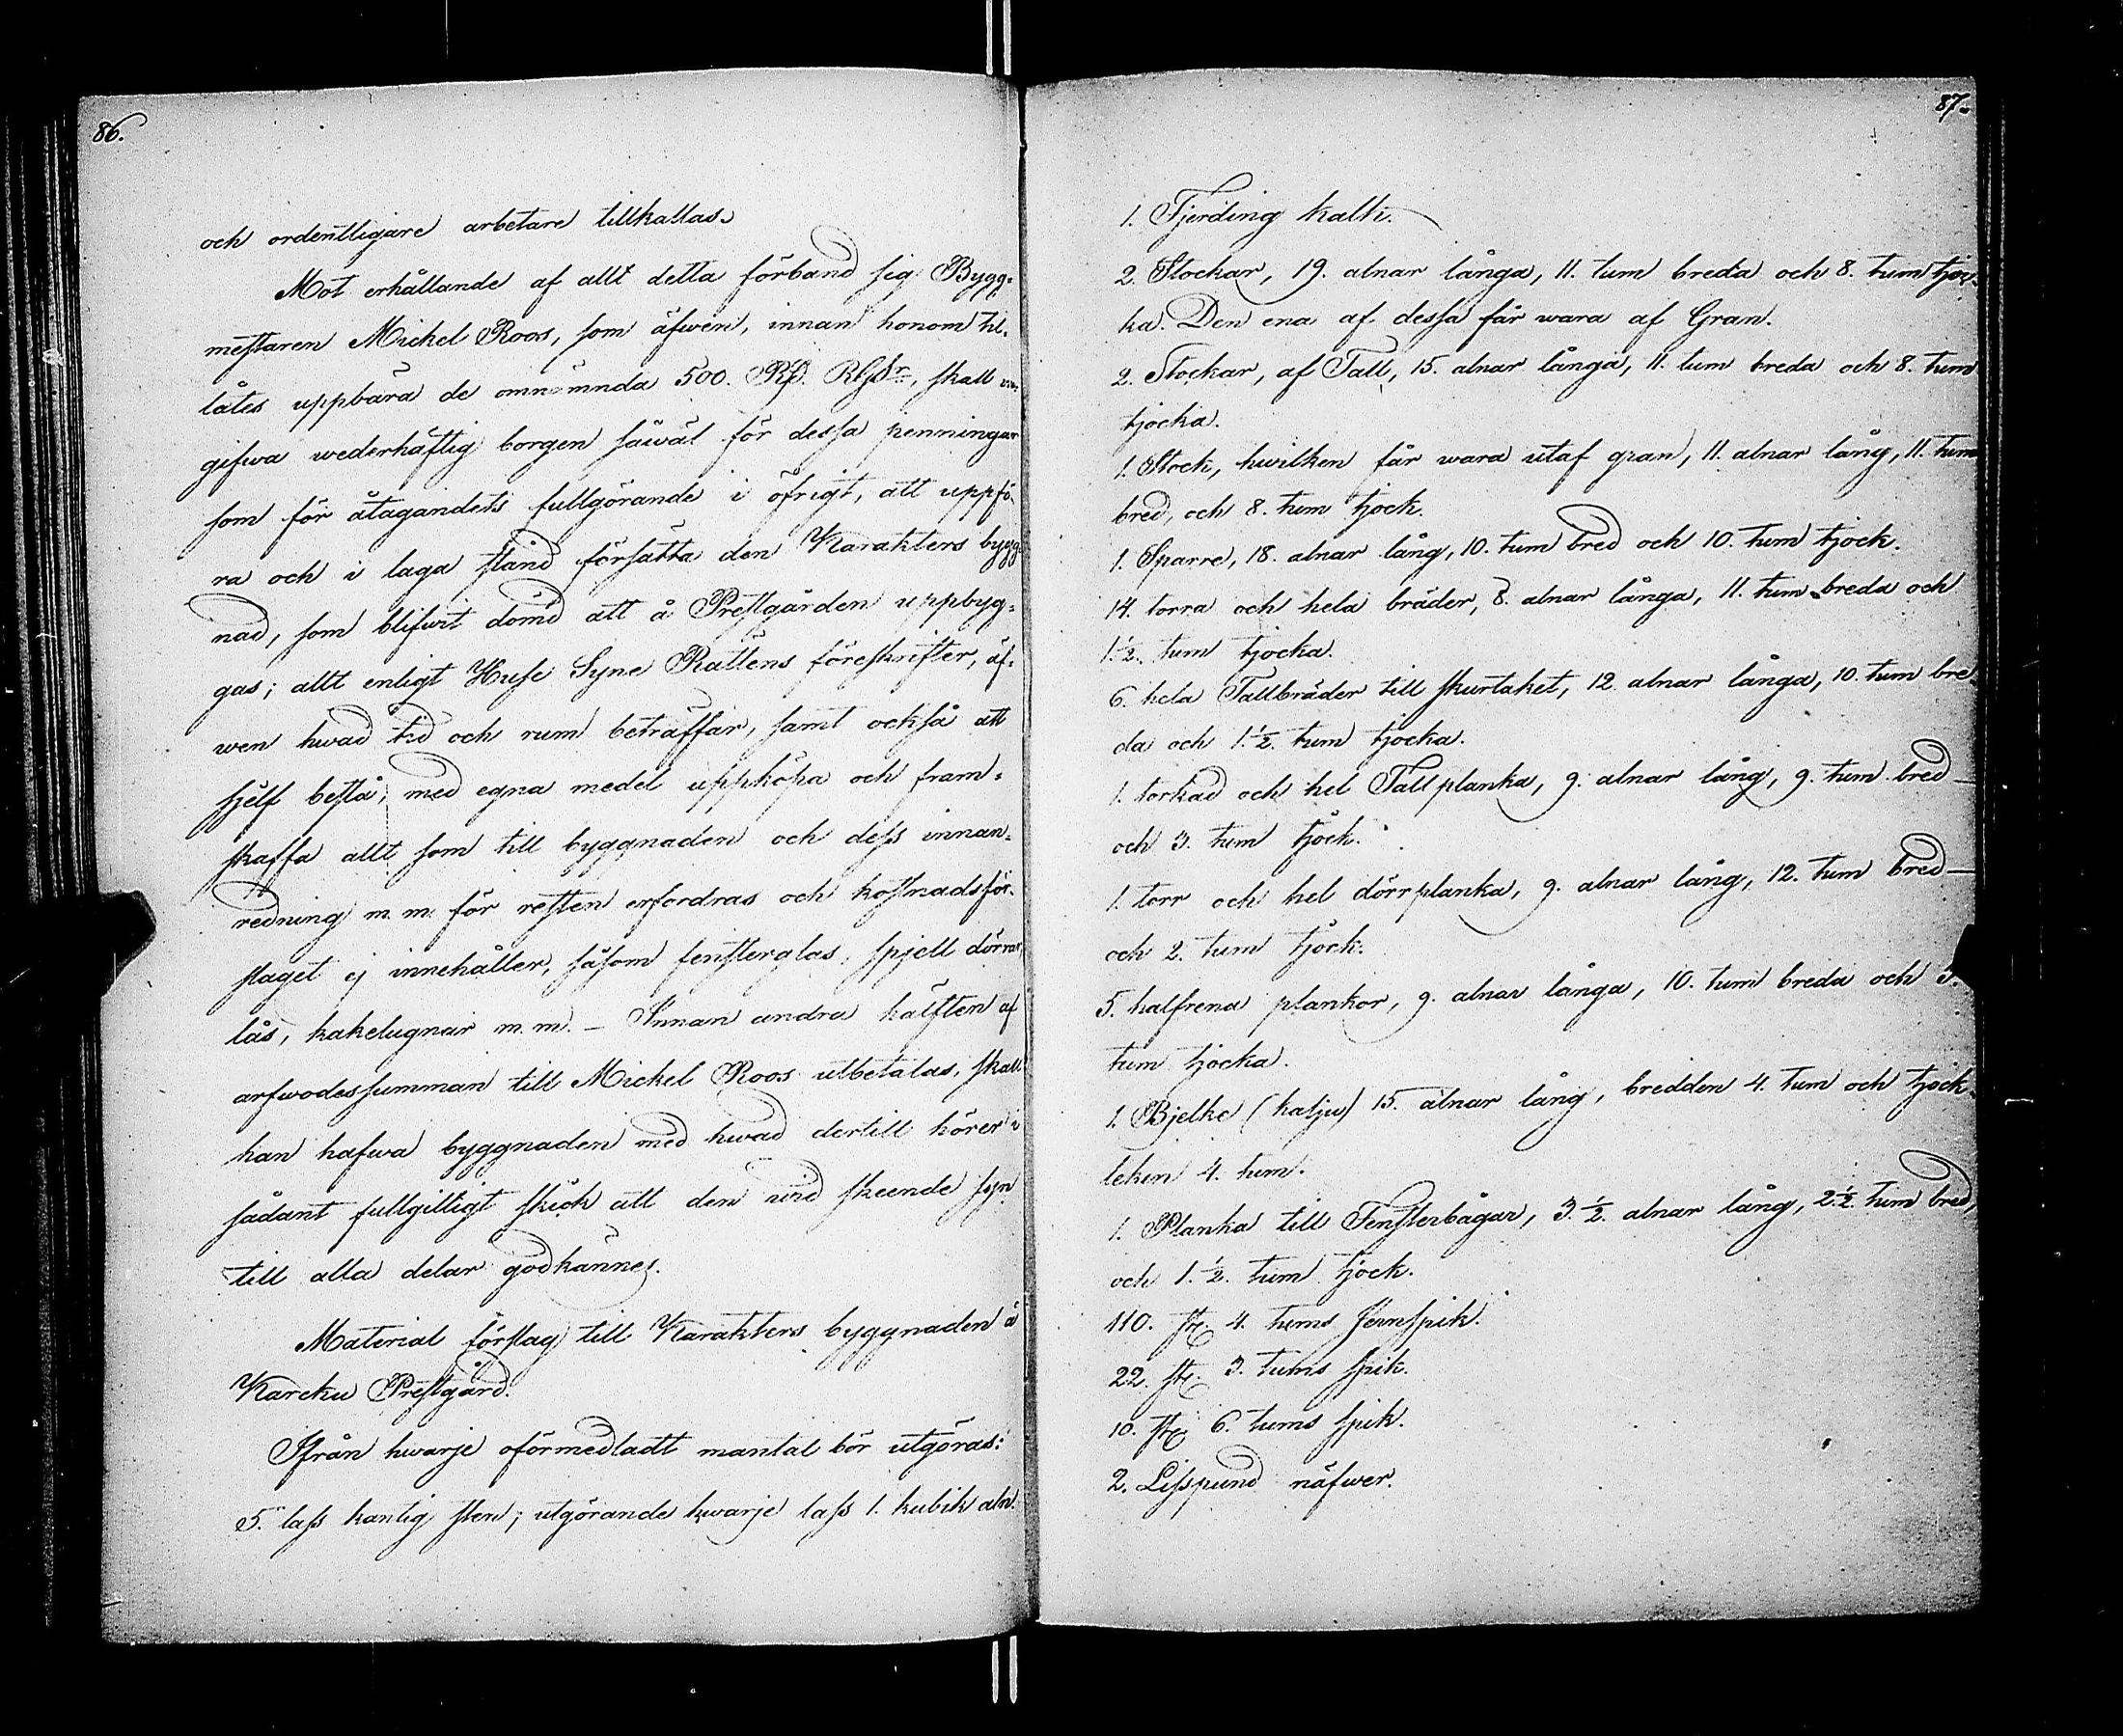 86.
och ordentligare arbetare tillkallas.
Mot erhållande af allt detta förband sig Bygg-
mestaren Mickel Roos, som äfwen, innan honom til-
låtes uppbära de omnämnda 500. Rß. Rbldr, skall
gifwa wederhäftig borgen såwäl för dessa penningar
som för åtagandets fullgörande i öfrigt, att uppfö-
ra och i laga stånd försätta den Karakters bygg-
nad, som blifwit dömd att å Prestgården uppbyg-
gas; allt enligt Huse Syne Rättens föreskrifter, äf-
wen hwad tid och rum beträffar, samt också att
sjelf bestå, med egna medel uppköpa och fram-
skaffa allt som till byggnaden och dess innan-
redning m. m. för resten erfordras och kostnadsför-
slaget ej innehåller, såsom fensterglas, spjell dörrar,
lås, kakelugnar m. m. – Innan andra hälften af
arfwodessumman till Mickel Roos utbetalas, skall
han hafwa byggnaden med hwad dertill hörer i
sådant fullgilligt skick att den wid skeende syn
till alla delar godkännes.
Material förslag till Karakters byggnaden å
Karcku Prestgård.
Ifrån hwarje oförmedladt mantal bör utgöras:
5. lass kantig sten; utgörande hwarje lass 1. kubik aln.
87.
1. Tjerding kalk.
2. Stockar, 19. alnar långa, 11. tum breda och 8. tum tjoc-
ka. Den ena af dessa får wara af Gran.
2. Stockar, af Tall, 15. alnar långa, 11. tum breda och 8. tum
tjocka.
1. Stock, hwilken får wara utaf gran, 11. alnar lång, 11. tum
bred, och 8. tum tjock.
1. Sparre, 18. alnar lång, 10. tum bred och 10. tum tjock.
14. torra och hela bräder, 8. alnar långa, 11. tum breda och
1.½. tum tjocka.
6. hela Tallbräder till skurtaket, 12. alnar långa, 10. tum bre-
da och 1.½. tum tjocka.
1. torkad och hel Tallplanka, 9. alnar lång, 9. tum bred
och 3. tum tjock.
1. torr och hel dörrplanka, 9. alnar lång, 12. tum bred
och 2. tum tjock.
5. halfrena plankor, 9. alnar långa, 10. tum breda och 3.
tum tjocka.
1. Bjelke (katju) 15. alnar lång, bredden 4. tum och tjock-
leken 4. tum.
1. Planka till Fensterbågar, 3.½. alnar lång, 2.½. tum bred,
och 1.½. tum tjock.
110. st. 4. tums Jernspik.
22. st. 3. tums spik.
10. st. 6. tums spik.
2. Lisspund näfwer.